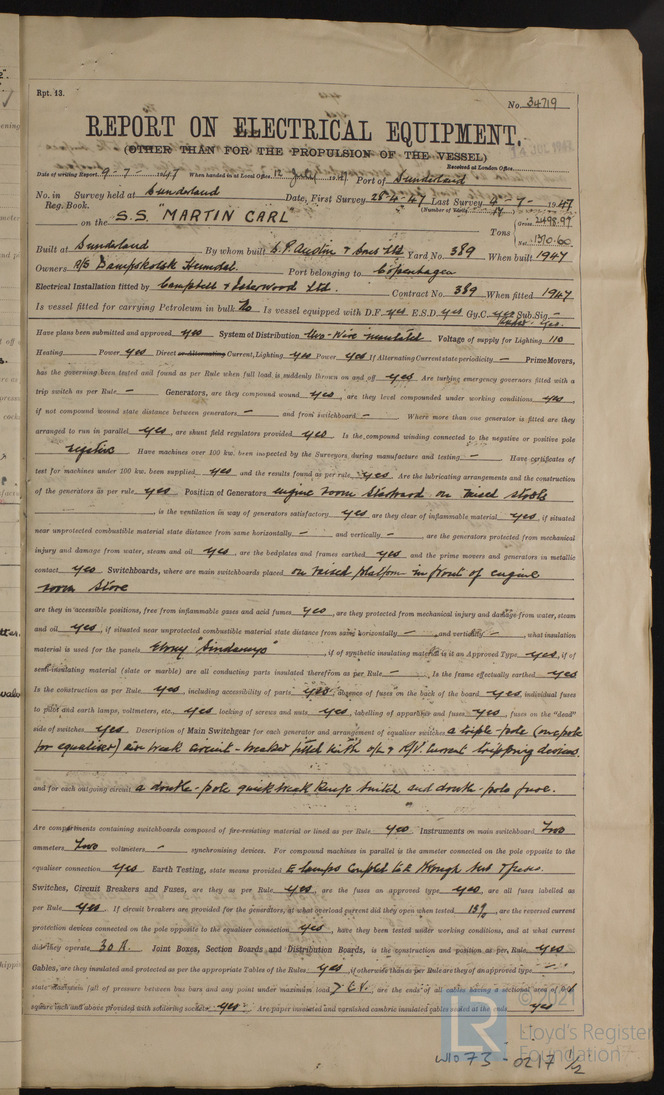 Rpt. 13.
No. 34719
REPORT ON ELECTRICAL EQUIPMENT.
(OTHER THAN FOR THE PROPULSION OF THE VESSEL)
Received at London Office
Date of writing Report 9-7- 1947 When handed in at Local Office 12 July 1947 Port of Sunderland
No. in Survey held at Sunderland Date, First Survey 28-4-47 Last Survey 4-7- 1947
Reg. Book. (Number of Visits 14)
on the S.S. "MARTIN CARL" Tons Gross 2498.97
Net 1310.60
Built at Sunderland By whom built S.P. Austin & Sons Ltd Yard No. 389 When built 1947
Owners A/S Dampskolsk Heimdal. Port belonging to Copenhagen
Electrical Installation fitted by Campbell & Isherwood Ltd. Contract No. 389 When fitted 1947
Is vessel fitted for carrying Petroleum in bulk No Is vessel equipped with D.F. yes E.S.D. yes Gy.C. yes Sub.Sig. –
Radar - Yes.
Have plans been submitted and approved yes System of Distribution two-wire insulated Voltage of supply for Lighting 110
Heating Power yes Direct or Alternating Current, Lighting yes Power yes If Alternating Current state periodicity – Prime Movers,
has the governing been tested and found as per Rule when full load is suddenly thrown on and off yes Are turbine emergency governors fitted with a
trip switch as per Rule – Generators, are they compound wound yes, are they level compounded under working conditions yes,
if not compound wound state distance between generators – and from switchboard – Where more than one generator is fitted are they
arranged to run in parallel yes, are shunt field regulators provided yes Is the compound winding connected to the negative or positive pole
negative Have machines over 100 kw. been inspected by the Surveyors during manufacture and testing – Have certificates of
test for machines under 100 kw. been supplied yes and the results found as per rule yes Are the lubricating arrangements and the construction
of the generators as per rule yes Position of Generators engine room starboard on raised stools
, is the ventilation in way of generators satisfactory yes are they clear of inflammable material yes, if situated
near unprotected combustible material state distance from same horizontally – and vertically –, are the generators protected from mechanical
injury and damage from water, steam and oil yes, are the bedplates and frames earthed yes and the prime movers and generators in metallic
contact yes Switchboards, where are main switchboards placed on raised platform in front of engine
room store
are they in accessible positions, free from inflammable gases and acid fumes yes, are they protected from mechanical injury and damage from water, steam
and oil yes, if situated near unprotected combustible material state distance from same horizontally – and vertically –, what insulation
material is used for the panels Ebony "Sindanyo", if of synthetic insulating material is it an Approved Type yes, if of
semi-insulating material (slate or marble) are all conducting parts insulated therefrom as per Rule – Is the frame effectually earthed yes
Is the construction as per Rule yes, including accessibility of parts yes, absence of fuses on the back of the board yes, individual fuses
to pilot and earth lamps, voltmeters, etc. yes locking of screws and nuts yes, labelling of apparatus and fuses yes, fuses on the "dead"
side of switches yes Description of Main Switchgear for each generator and arrangement of equaliser switches a triple-pole (one pole
for equaliser) air break circuit-breaker fitted with o/c & R/V. current tripping devices
and for each outgoing circuit a double-pole quick break knife switch and double pole fuse.
Are compartments containing switchboards composed of fire-resisting material or lined as per Rule yes Instruments on main switchboard Two
ammeters Two voltmeters – synchronising devices. For compound machines in parallel is the ammeter connected on the pole opposite to the
equaliser connection yes Earth Testing, state means provided E lamps coupled to E through sws & fuses.
Switches, Circuit Breakers and Fuses, are they as per Rule yes, are the fuses an approved type yes, are all fuses labelled as
per Rule yes If circuit breakers are provided for the generators, at what overload percent did they open when tested 15%, are the reversed current
protection devices connected on the pole opposite to the equaliser connection yes, have they been tested under working conditions, and at what current
did they operate 30 A. Joint Boxes, Section Boards and Distribution Boards, is the construction and position as per Rule yes
Cables, are they insulated and protected as per the appropriate Tables of the Rules yes, if otherwise than as per Rule are they of an approved type –
state maximum fall of pressure between bus bars and any point under maximum load, are the ends of all cables having a sectional area of
square inch and above provided with soldering sockets yes Are paper insulated and varnished cambric insulated cables sealed at the ends yes
© 2021
LR
Lloyd's Register
Foundation
W1073-0217 1/2